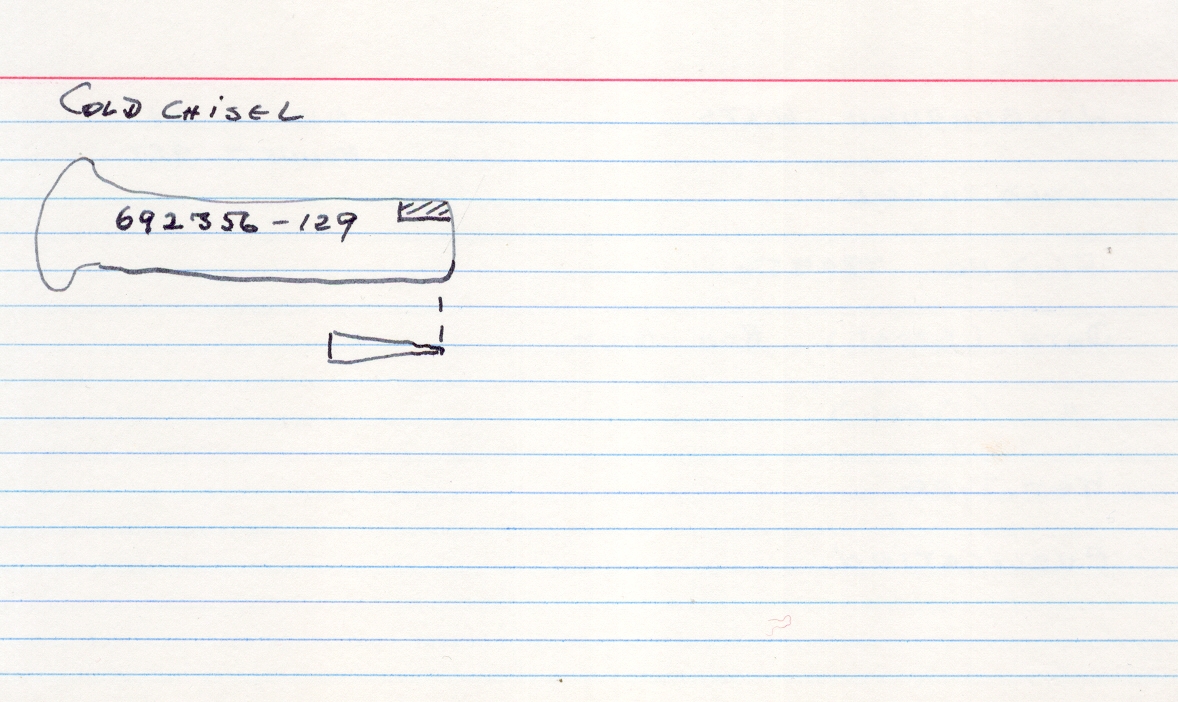 COLD CHiSEL
692356-129